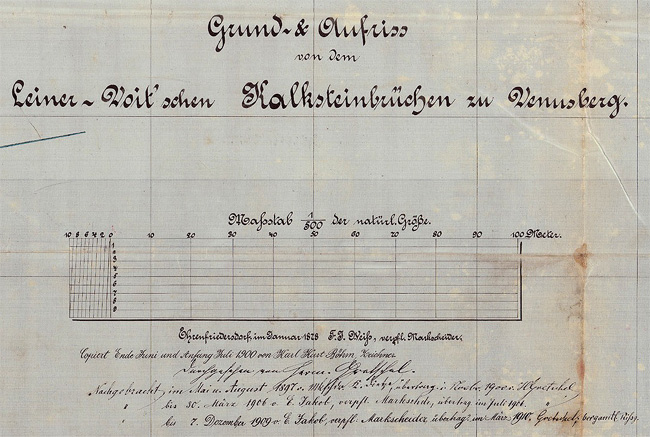 Grund- & Aufriss
von dem
Leiner-Voit'schen Kalksteinbrüchen zu Venusberg.
Maßstab 1/500 der natürl. Größe.
10 8 6 4 2 0 10 20 30 40 50 60 70 80 90 100 Meter.
1
2
3
4
5
6
7
8
9
Ehrenfriedersdorf, im Januar 1878 F. I. Weiß, verpfl. Markscheider.
Copiert Ende Juni und Anfang Juli 1900 von Karl Kurt Böhm, Zeichner
Durchgesehen von Herm.
Nachgebracht im Mai u. August 1897 v.
" bis 30. März 1906 v. E. Jakob, verpfl. Marksch., übertrag. im Juli 1906.
" bis 7. Dezember 1909 v. E. Jakob, verpfl. Markscheider, übertrag. im März 1910. bergamtl. Rißr.